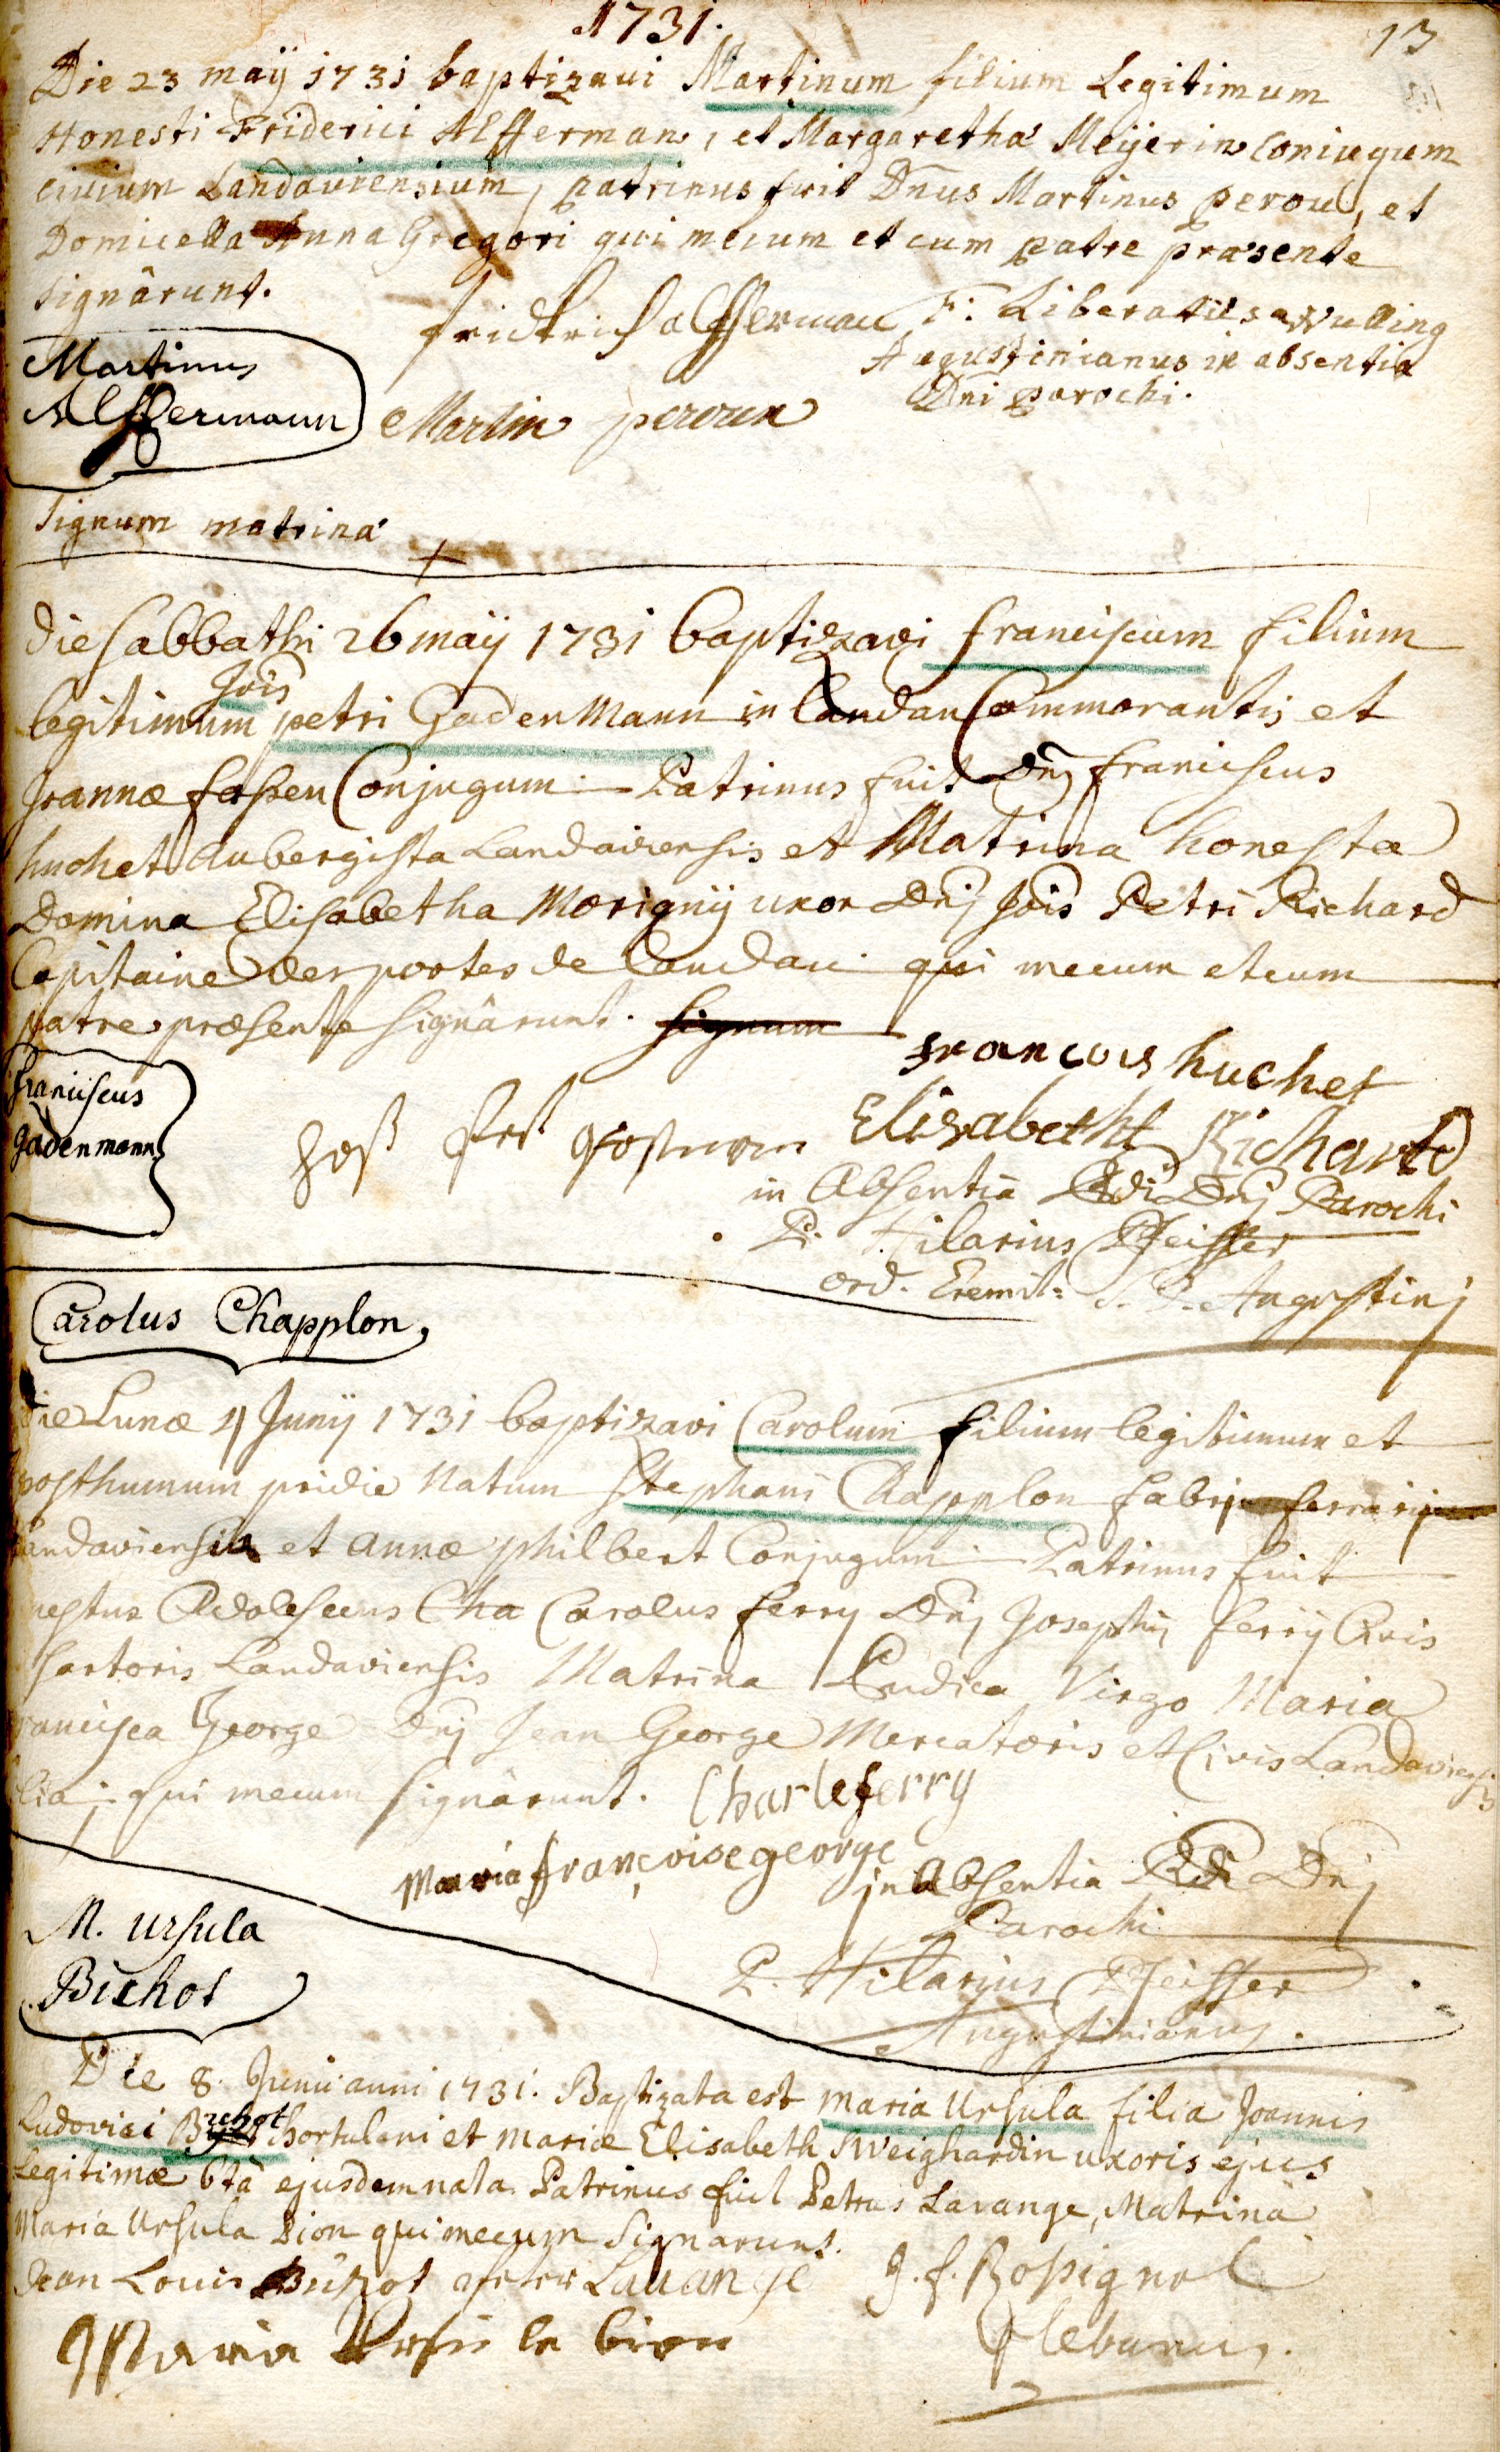 1731.
13
Die 23 maÿ 1731 baptizavi Martinum filium Legitimum
Honesti Friderici Alfferman, et Margaretha Meÿerin coniugum
civium Landaviensium, patrinus fuit Dnus Martinus perou, et
Domicella Anna Gregori qui mecum et cum patre præsente
signârunt.
fridrich alfferman F: Liberatus Wulling
Augustinianus in absentia
Dni parochi.
Martinus
Alffermann
Martin peroun
Signum matrina +
die Sabbathi 26 maÿ 1731 baptizavi franciscum filium
Jois
legitimum petri Gadenmann in landau Commorantis et
Joannæ Conjugum Patrinus fuit Dnj franciscus
huchet Aubergista Landaviensis et Matrina honesta
Domina Elisabetha Morignÿ uxor Dnj Jois Petri Richard
Capitaine des portes de landau qui mecum et cum
patre præsente signârunt. signum
francois huchet
Franciscus
gadenmann
Elisabetht Richard
in Absentia Rdi Dnj Parochi
P. Hilarius Pfeiffer
ord. Eremit: S. P. Augustinj
Carolus Chapplon,
die Lunæ 4 Junÿ 1731 baptizavi Carolum filium legitimum et
posthumum pridie Natum Stephani Chapplon fabri ferrarij
Landaviensis et Annæ philbert Conjugum Patrinus fuit
nestus Adolescens Cha Carolus ferry Dnj Josephi ferrÿ Civis
sartoris Landaviensis Matrina Pudica Virgo Maria
rancisca George Dnj Jean George Mercatoris et Civis Landaviensis
lia; qui mecum signârunt. Charle ferry
Maria françoise george
in Absentia Rdi Dnj
Parochi
P. Hilarius Pfeiffer
Augustinianus.
M. Ursula
Bichot
Die 8. Junii anni 1731. Baptizata est Maria Ursula filia Joannis
Ludovici Bichot hortulani et Mariæ Elisabeth Sweighardin uxoris ejus
Legitimæ 6tâ ejusdem nata. Patrinus fuit Petrus Lavange, Matrina
Maria Ursula Dion qui mecum signarunt.
Jean Louis Lauange J. f. Rossignol
Maria le
Plebanus.